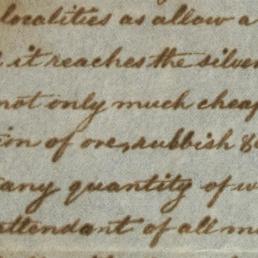 localities as allow a
it reaches the silver
not only much cheap
ion of ore, rubbish &
any quantity of w
attendant of all m